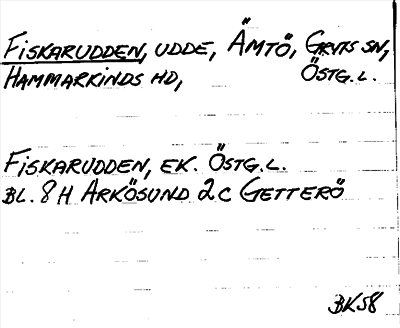 FISKARUDDEN, UDDE, ÄMTÖ, GRYTS SN,
HAMMARKINDS HD, ÖSTG. L.
FISKARUDDEN, EK. ÖSTG. L.
BL. 8 H ARKÖSUND 2 C GETTERÖ
BK58